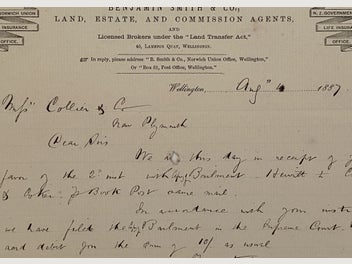 BENJAMIN SMITH & CO.,
LAND, ESTATE, AND COMMISSION AGENTS,
AND
Licensed Brokers under the "Land Transfer Act,"
40, LAMBTON QUAY, WELLINGTON.
In reply, please address "B. Smith & Co., Norwich Union Office, Wellington,"
Or "Box 21, Post Office, Wellington."
NORWICH UNION
INSURANCE
OFFICE.
N.Z. GOVERNMENT
LIFE INSURANCE
OFFICE.
Wellington, Augt 4 1887.
Messrs Collier & Co
New Plymouth
Dear Sirs
We are this day in receipt of
favor of the 2nd inst with Hewitt
Book Post same mail.
In accordance with your
we have filed the in the Supreme Court.
and debit you the sum of 10/ as usual